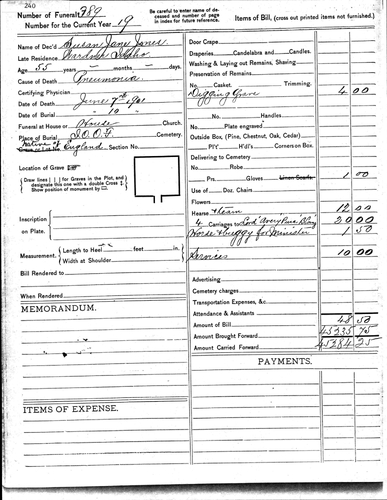 240
Number of Funeral 389
Number for the Current Year 19
Be carefu to enter name of deceased and number of page in index for future reference.
Items of Bill, (cross out printed items not furnished.)
Name of Dec'd Susan Jane Jones
Late Residence Wardner Idaho
Age 55 years months days.
Cause of Death Pneumonia
Certifying Physician
Date of Death June 7th 1901
Date of Burial " 10 "
Funeral at House or House Church.
Place of Burial I.O.O.F. Cemetery.
Native of England Section No.
Location of Grave
Draw lines | | for Graves in the Plot, and designate this one with a double Cross
Show position of monument by
Inscription on Plate.
Measurement. Length to Heel feet in.
Width at Shoulder "
Bill Rendered to
When Rendered
MEMORANDUM.
ITEMS OF EXPENSE.
Door Crape
Draperies Candelabra and Candles
Washing & Laying out Remains, Shaving
Preservation of Remains
No. Casket. Trimming.
Digging Grave 4 00
No. Handles
No. Plate engraved
Outside Box, (Pine, Chestnut, Oak, Cedar)
P'y H'dl's Corners on Box
Delivering to Cemetery
No. Robe
Prs. Gloves Linen Scarfs 1 00
Use of Doz. Chairs
Flowers
Hearse & team 12 00
4 Carriages to 20 00
Horse & buggy for Minister 1 50
Services 10 00
Advertising
Cemetery charges
Transportation Expenses, &c.
Attendance & Assistants
Amount of Bill 48 50
Amount Brought Forward 45335 75
Amount Carried Forward 45384 25
PAYMENTS.